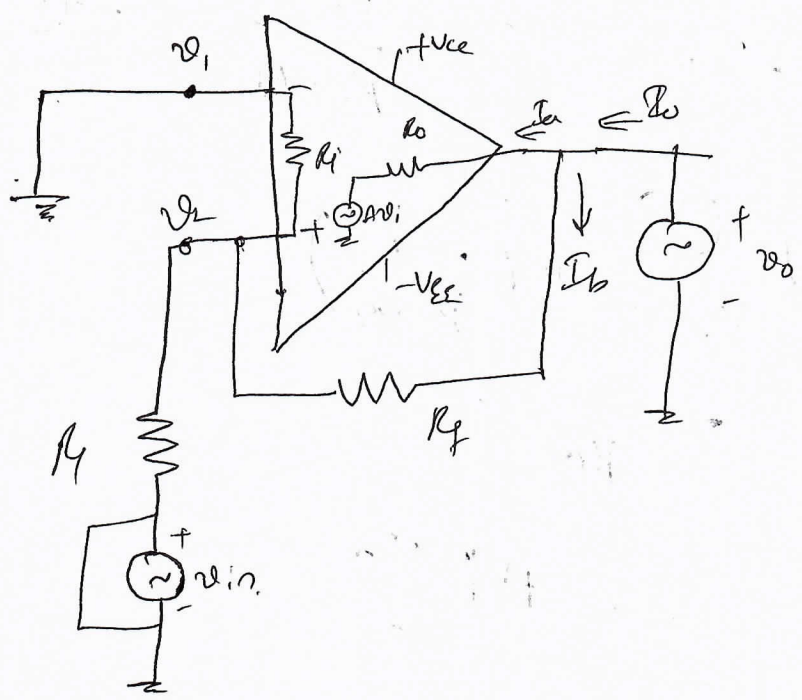 v₁
+Vcc
−
Ri
Ro
Ia
Io
v₂
+
Avi
−VEE
Ib
+
vo
−
Rf
R1
+
vin
−